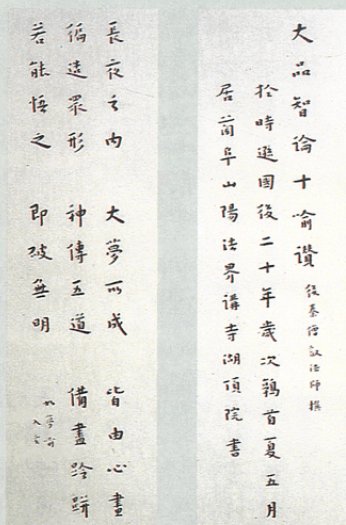 大品智論十喻讚 後秦僧叡法師撰
於時遜國後二十年歲次鶉首夏五月
居蘭阜山陽法界講寺湖頂院書
長夜之內 大夢所成 皆由心畫
徧造眾形 神傳五道 備盡跉跰
若能悟之 即破無明